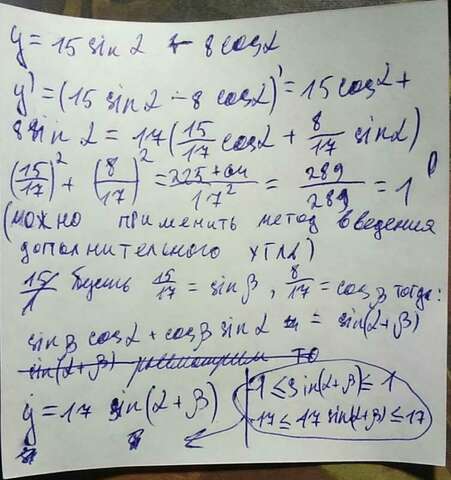 y = 15 sin α - 8 cos α
y' = (15 sin α - 8 cos α)' = 15 cos α +
8 sin α = 17 (15/17 cos α + 8/17 sin α)
(15/17)² + (8/17)² = 225 + 64 / 17² = 289/289 = 1
(можно применить метод введения
дополнительного угла)
15/1 Пусть 15/17 = sin β, 8/17 = cos β тогда:
sin β cos α + cos β sin α = sin(α + β)
sin(α + β) рассмотрим то
y = 17 sin(α + β)
-1 ≤ sin(α + β) ≤ 1
-17 ≤ 17 sin(α + β) ≤ 17